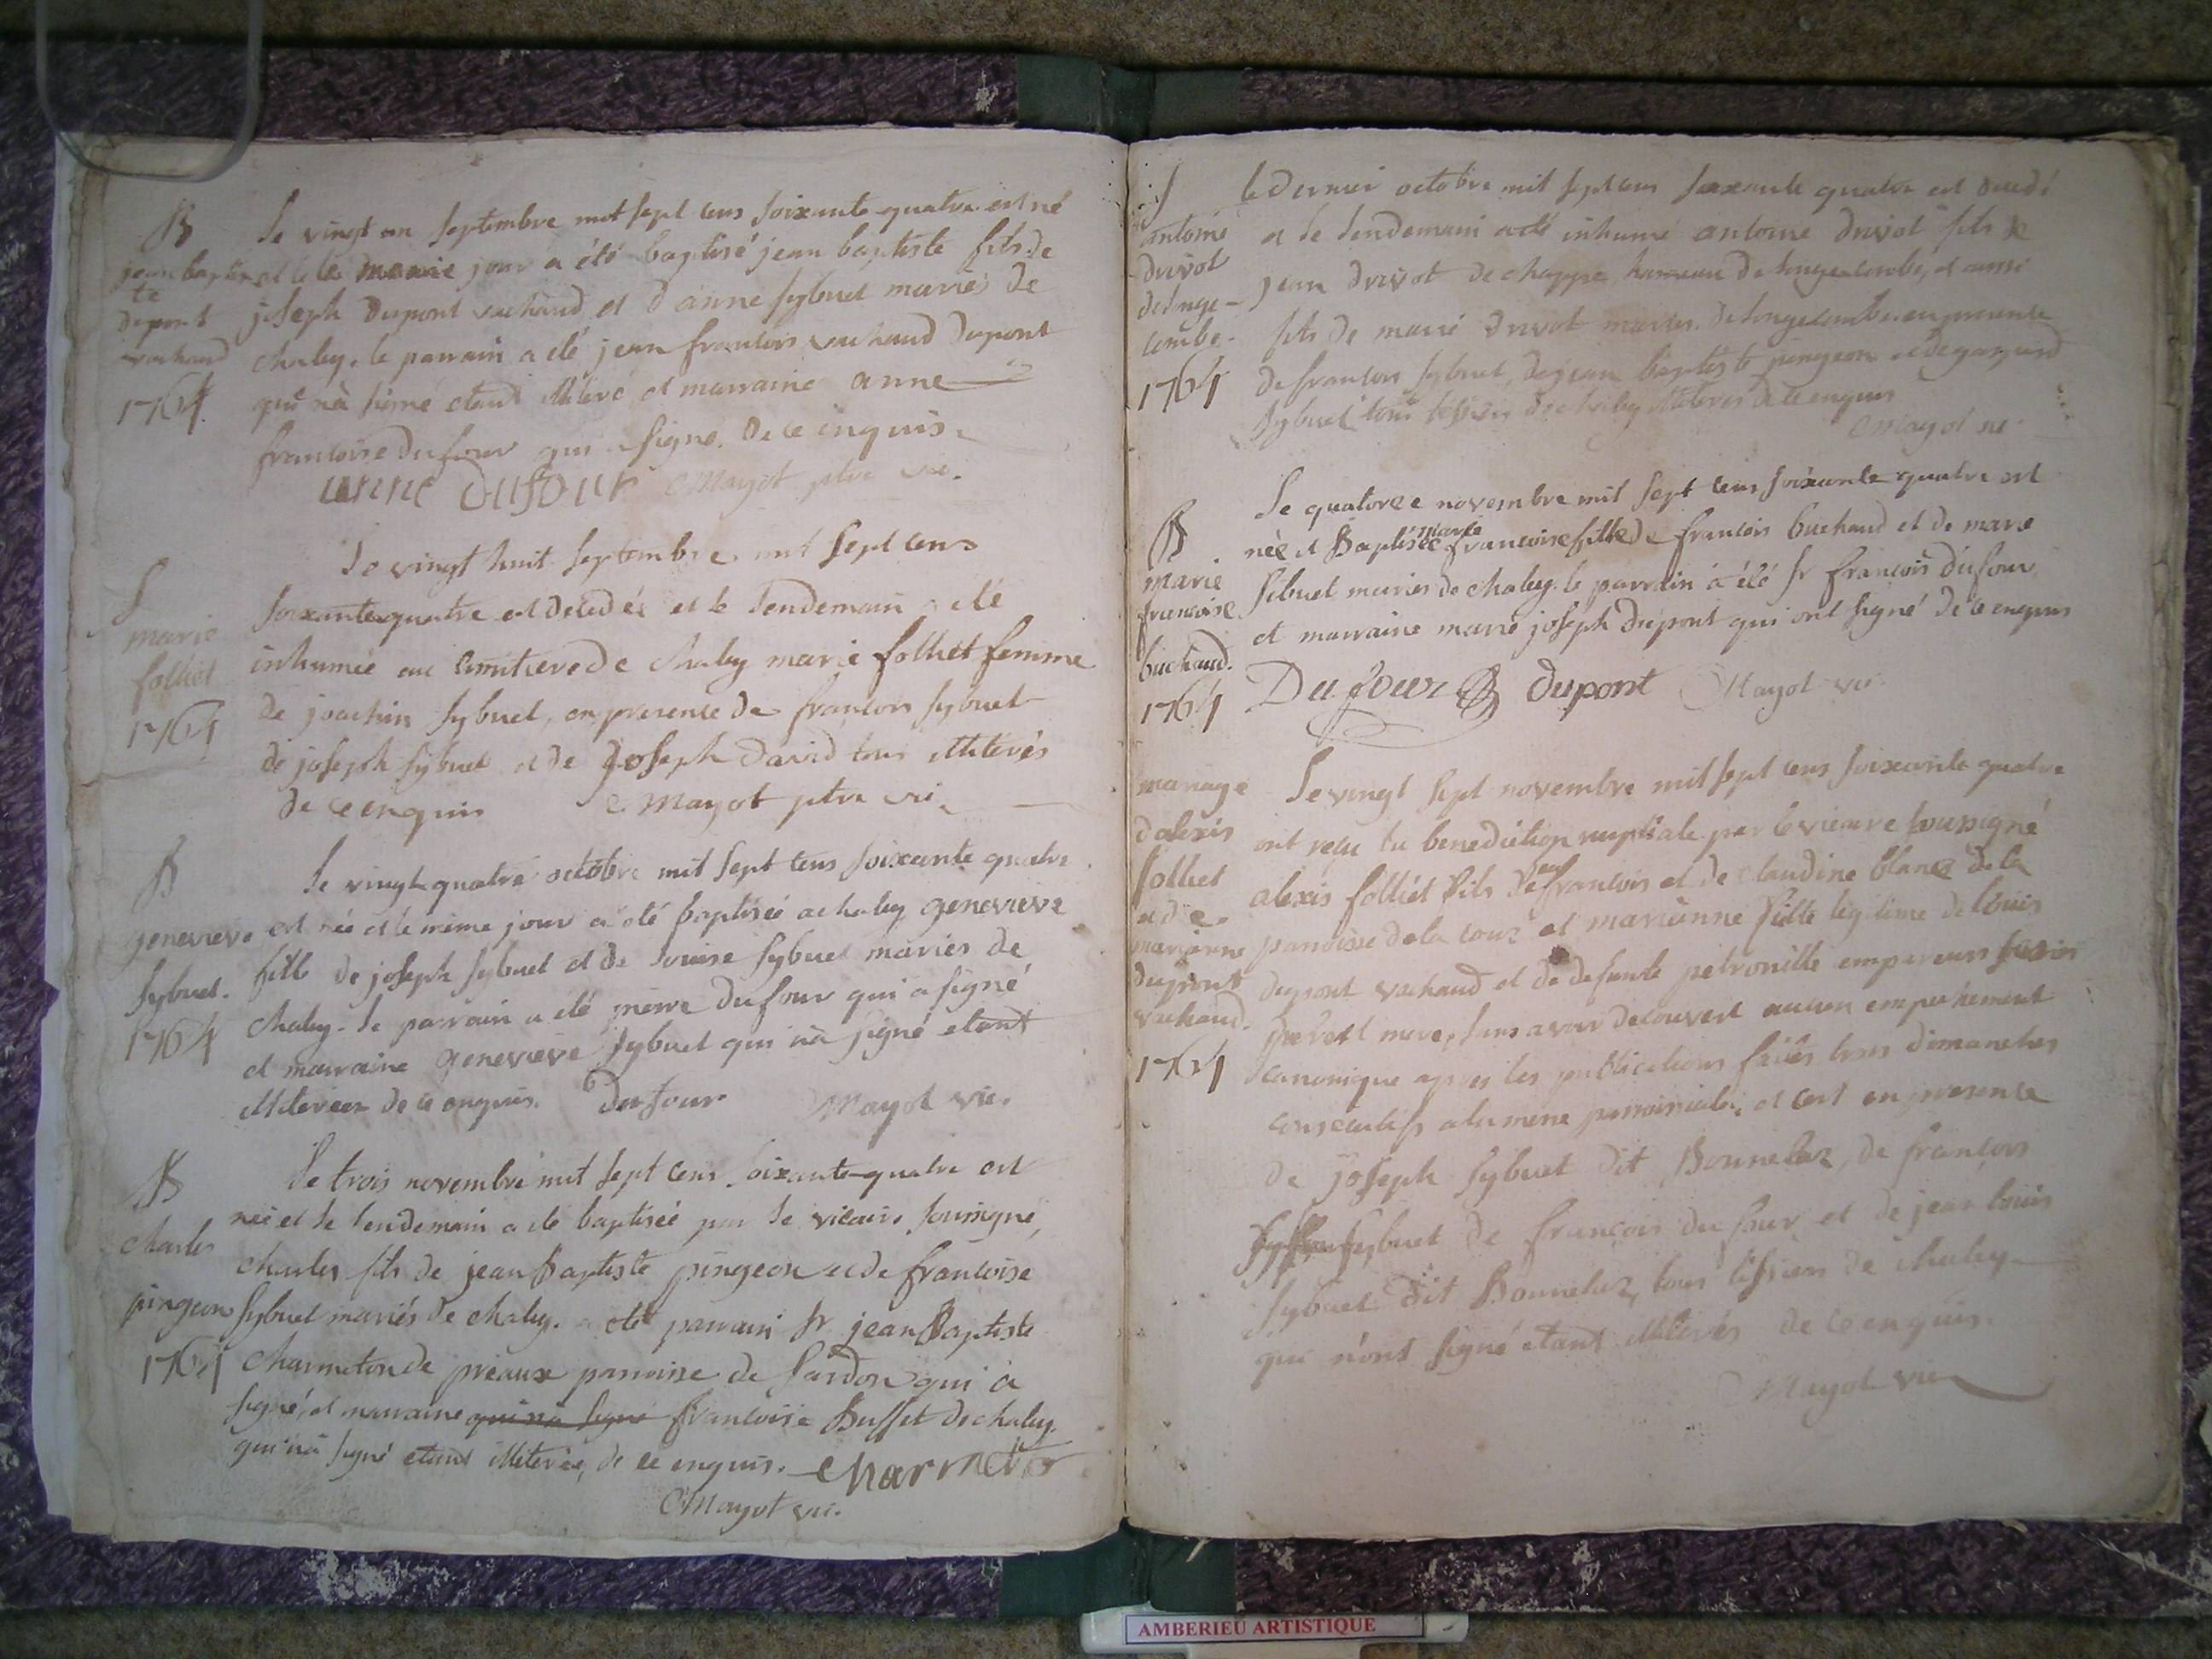 B
jean baptis
te
dupont
vachaud
1764
Le vingt un septembre mil sept cens soixante quatre est né
et le même jour a été baptisé jean baptiste fils de
joseph dupont vachaud et d'anne sybuet mariés de
chaley. le parrain a été jean francois vachaud dupont
qui n'à signé etant illiteré, et marraine anne
francoise dufour qui a signé. de ce enquis.
anne dufour Mayot ptre vic.
S
marie
folliet
1764
Le vingt huit septembre mil sept cens
soixante quatre est decedée et le lendemain a été
inhumée au cimitiere de chaley marie folliet femme
de joachin sybuet, en presence de francois sybuet
de joseph sybuet et de joseph david tous illiterés
de ce enquis Mayot ptre vic.
B
genevieve
sybuet.
1764
Le vingt quatre octobre mil sept cens soixante quatre
est née et le même jour a été baptisée a chaley genevieve
fille de joseph sybuet et de louise sybuet mariés de
chaley. le parrain a été pierre dufour qui a signé
et marraine genevieve sybuet qui n'à signé etant
illiterée de ce enquis. Dufour Mayot vic.
B
charles
pingeon
1764
Le trois novembre mil sept cens soixante quatre est
né et le lendemain a été baptisée par le vicaire soussigné,
charles fils de jean Baptiste pingeon et de francoise
sybuet mariés de chaley. a été parrain sr jean Baptiste
charmeton de preaux parroisse de sardon qui à
signé, et marraine qui n'a signé francoise Buffet de chaley
qui n'à signé etant illiterée, de ce enquis. Charmeton
Mayot vic.
S
antoine
drivot
de longe-
combe.
1764
le Dernier octobre mil sept cens soixante quatre est decedé
et le lendemain a été inhumé antoine drivot fils de
jean drivot de chappe hameau de longecombe, et aussi
fils de marie drivot mariés de longecombe. en presence
de francois sybuet, de jean baptiste pingeon et de
sybuet tous de chaley illiterés de ce enquis
Mayot vic.
B
marie
francoise
buchaud.
1764
Le quatorze novembre mil sept cens soixante quatre est
née et Baptisée marie francoise fille de francois buchaud et de marie
sibuet mariés de chaley. le parrain à été sr francois dufour
et marraine marie joseph dupont qui ont signé de ce enquis
Dufour dupont Mayot vic.
mariage
d'alexis
folliet
et de
marianne
dupont
vachaud.
1764
Le vingt sept novembre mil sept cens soixante quatre
ont reçu la benediction nuptiale par le vicaire soussigné
alexis folliet fils de feu francois et de claudine blanc de la
parroisse de la couz et marianne fille legitime de louis
dupont vachaud et de defunte petronille empereur
pere et mere, sans avoir decouvert aucun empechement
canonique apres les publications faites trois dimanches
consecutifs a la messe parroissiale, et cest en presence
de joseph sybuet dit Bonnelaz, de francois
sybuet de francois dufour et de jean louis
sybuet dit Bonnelaz, tous de chaley
qui n'ont signé etant illiterés de ce enquis.
Mayot vic
AMBERIEU ARTISTIQUE